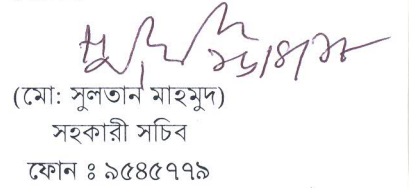 (মো: সুলতান মাহমুদ)
সহকারী সচিব
ফোন ঃ ৯৫৪৫৭৭৯